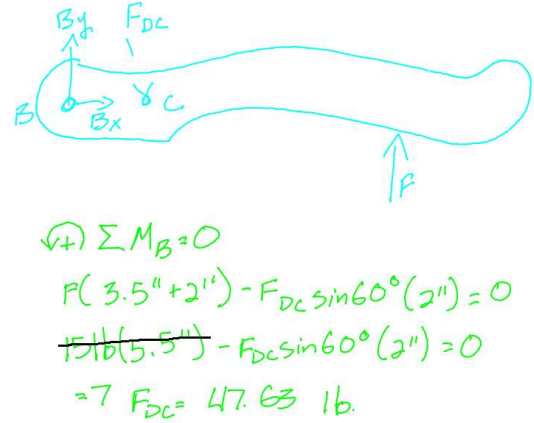 By FDC
B Bx C
F
+) ΣM_B=0
F(3.5"+2") - F_DC sin60°(2")=0
15lb(5.5") - F_DC sin60°(2")=0
=7 F_DC= 47.63 lb.